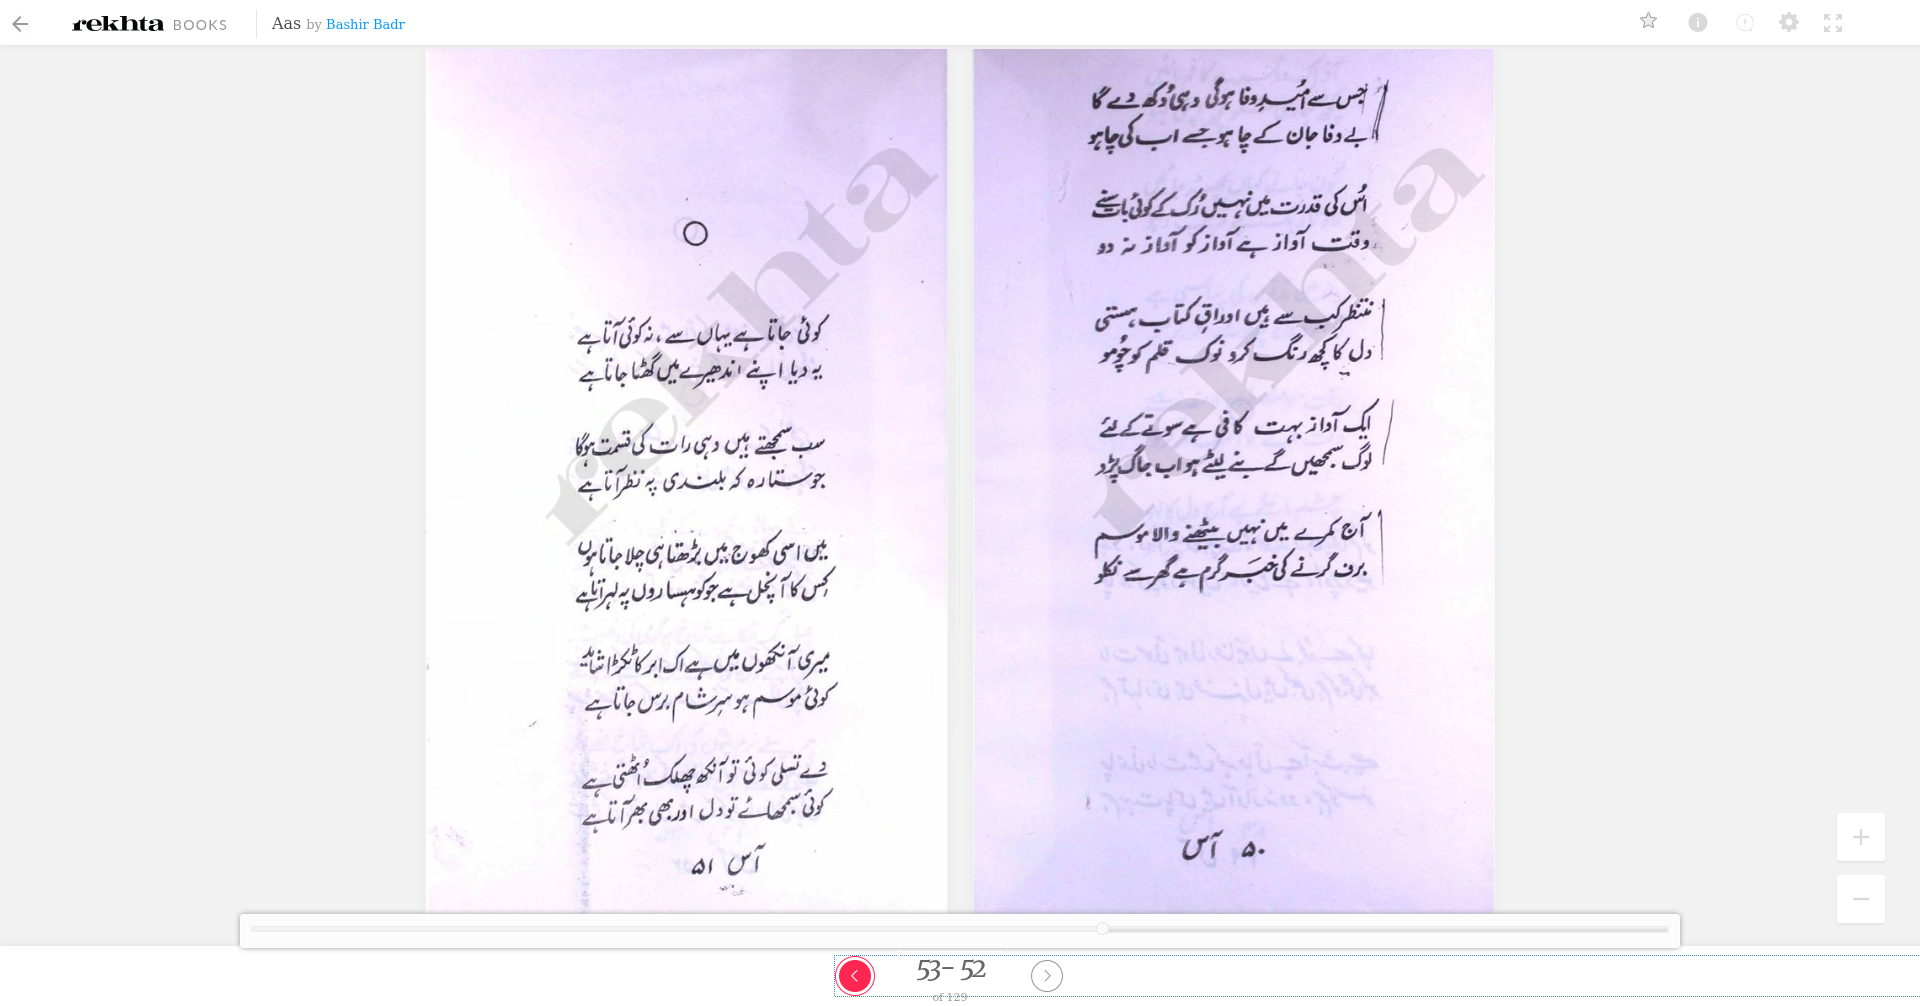 rekhta BOOKS Aas by Bashir Badr
جس سے اُمیدِ وفا ہوگی وہی دُکھ دے گا
بے وفا جان کے چاہو جسے اب کی چاہو
اُس کی قدرت میں نہیں رُک کے کوئی بات سنے
وقت آواز ہے آواز کو آواز نہ دو
منتظر کب سے ہیں اوراقِ کتاب ہستی
دل کا کچھ رنگ کرو نوک قلم کو چُومو
ایک آواز بہت کافی ہے سوتے کے لئے
لوگ سمجھیں گے بنے لیٹے ہو اب جاگ پڑو
آج کمرے میں نہیں بیٹھنے والا موسم
برف گرنے کی خبر گرم ہے گھر سے نکلو
۵۰ آس
کوئی جاتا ہے یہاں سے ، نہ کوئی آتا ہے
یہ دیا اپنے اندھیرے میں گھٹا جاتا ہے
سب سمجھتے ہیں وہی رات کی قسمت ہوگا
جو ستارہ کہ بلندی پہ نظر آتا ہے
میں اسی کھوج میں بڑھتا ہی چلا جاتا ہوں
کس کا آنچل ہے جو کوہساروں پہ لہراتا ہے
میری آنکھوں میں ہے اک ابر کا ٹکڑا شاید
کوئی موسم ہو سرِ شام برس جاتا ہے
دے تسلی کوئی تو آنکھ چھلک اُٹھتی ہے
کوئی سمجھائے تو دل اور بھی بھر آتا ہے
آس ۵۱
rekhta
rekhta
53- 52
of 129